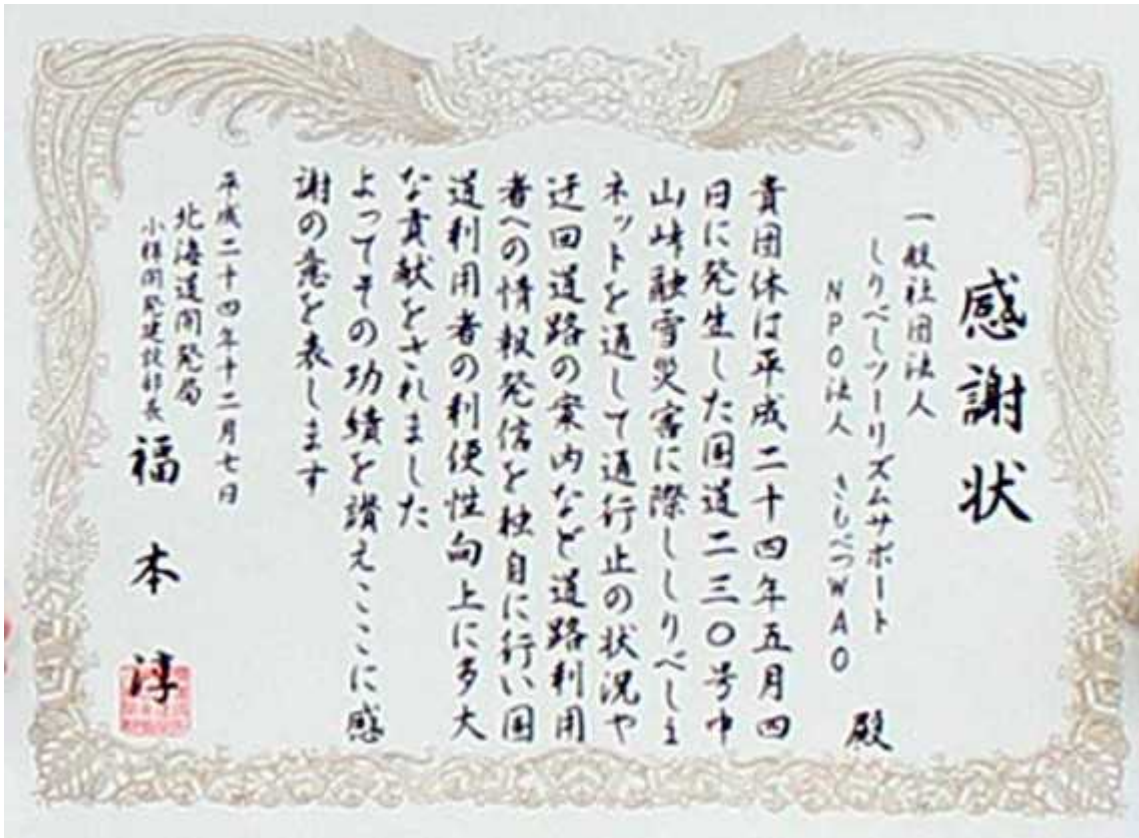 感謝状
一般社団法人
しりべしツーリズムサポート
NPO法人 きもべつWAO
殿
貴団体は平成二十四年五月四
日に発生した国道二三〇号中
山峠融雪災害に際ししりべしi
ネットを通して通行止の状況や
迂回道路の案内など道路利用
者への情報発信を独自に行い国
道利用者の利便性向上に多大
な貢献をされました
よってその功績を讃えここに感
謝の意を表します
平成二十四年十二月七日
北海道開発局
小樽開発建設部長 福本淳